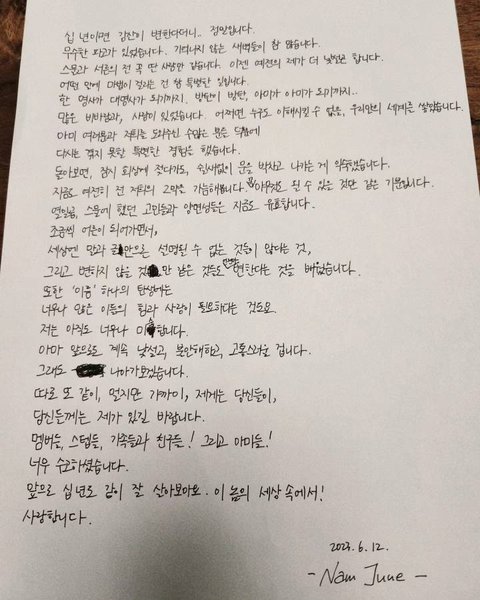 십 년이면 강산이 변한다더니.. 정말입니다.
무수한 파고가 있었습니다. 기억나지 않은 새벽들이 참 많습니다.
스물과 서른의 전 꼭 딴 사람만 같습니다. 이젠 예전의 제가 더 낯설곤 합니다.
어떤 말에 마법이 걸리는 건 참 특별한 일입니다.
한 명사가 대명사가 되기까지. 방탄이 방탄, 아미가 아미가 되기까지..
많은 비바람과, 사랑이 있었습니다. 어쩌면 누구도 이해시킬 수 없을, 우리만의 세계를 살았습니다.
아미 여러분과 저희를 도와주신 수많은 분들 덕분에
다시는 겪지 못할 특별한 경험을 했습니다.
돌아보면, 잠시 회상에 젖다가도, 쉼없이 문을 박차고 나가는 게 익숙했습니다.
지금도 여전히 전 저희의 2막을 가늠해봅니다. 아무것도 될 수 있는 것만 같은 기분입니다.
열일곱, 스물에 했던 고민들과 양면성들은 지금도 유효합니다.
조금씩 어른이 되어가면서,
세상엔 말과 글만으로 설명될 수 없는 것들이 많다는 것,
그리고 변하지 않을 것만 같은 것들도 변한다는 것을 배웠습니다.
또한 '이름' 하나의 탄생에는
너무나 많은 이들의 힘과 사랑이 필요하다는 것도요.
저는 아직도 너무나 미합니다.
아마 앞으로도 계속 낯설고, 불안해하고, 고통스러울 겁니다.
그래도 나아가보겠습니다.
따로 또 같이, 멀지만 가까이, 제게는 당신들이,
당신들께는 제가 있길 바랍니다.
멤버들, 스텝들, 가족들과 친구들! 그리고 아미들!
너무 수고하셨습니다.
앞으로 십 년도 같이 잘 살아보아요. 이 놈의 세상 속에서!
사랑합니다.
2023.6.12.
- Nam June -